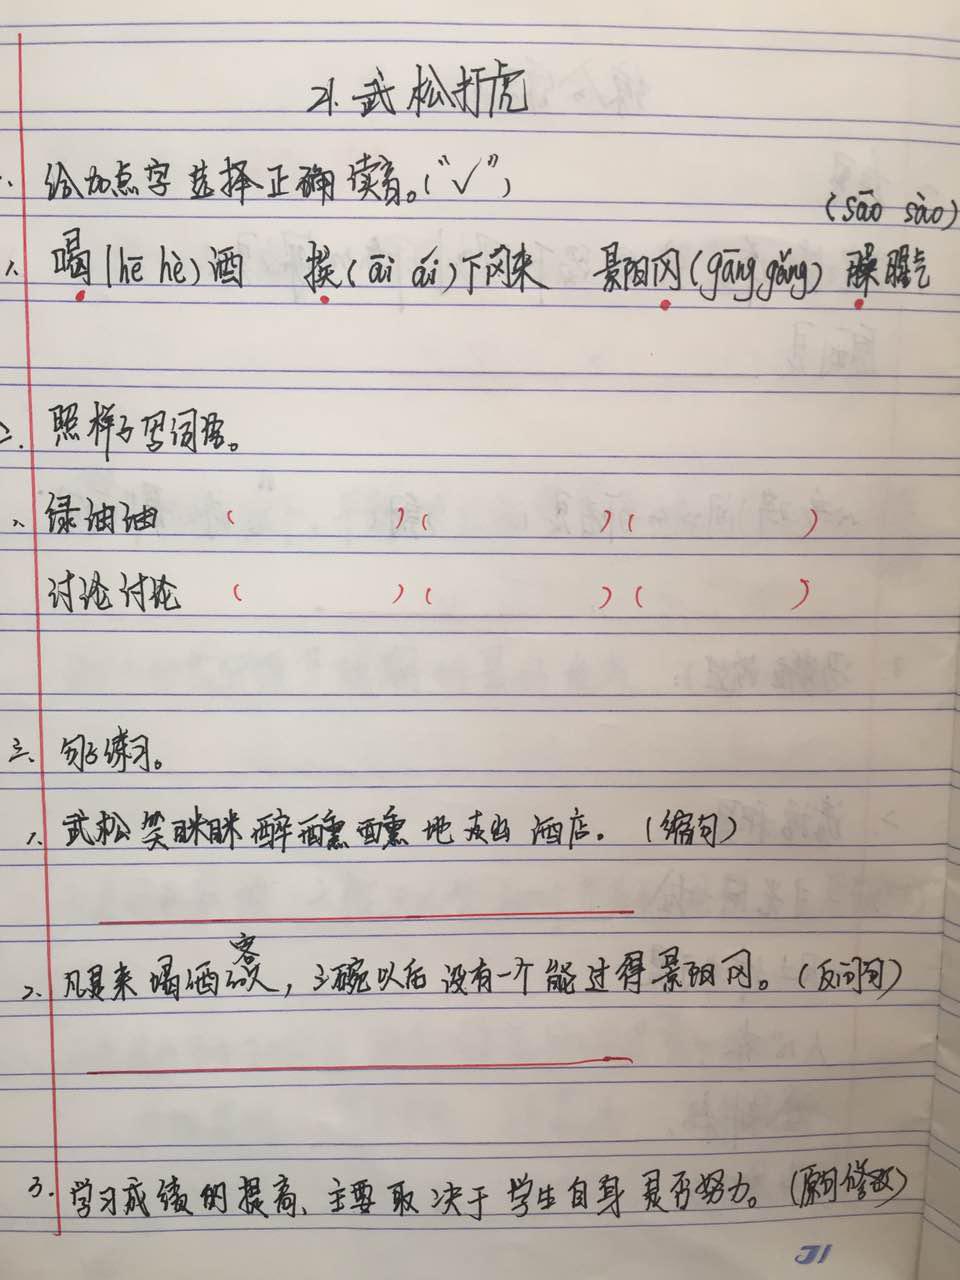 21. 武松打虎
一、给加点字选择正确读音。(“√”)
(sāo sào)
1、喝(hē hè)酒 挨(āi ái)下冈来 景阳冈(gāng gǎng) 臊腥气
二、照样子写词语。
1、绿油油 ( )( )( )
讨论讨论 ( )( )( )
三、句子练习。
1、武松笑眯眯醉醺醺地走出酒店。(缩句)
客
2、凡是来喝酒的人,三碗以后没有一个能过得景阳冈。(反问句)
3、学习成绩的提高、主要取决于学生自身是否努力。(原句修改)